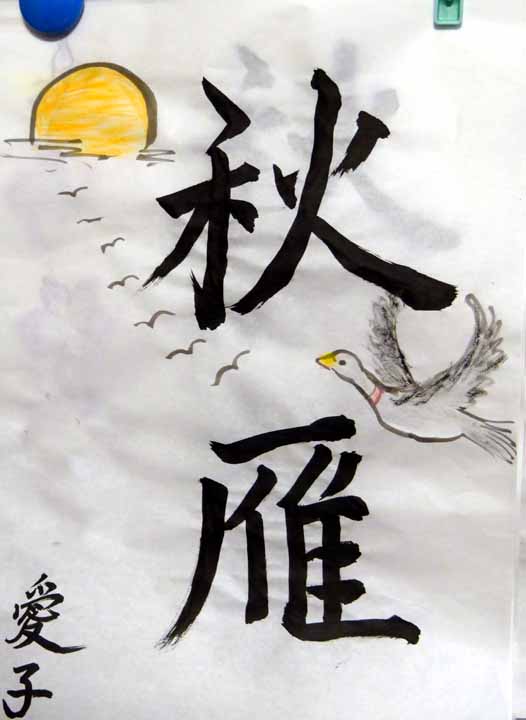 秋雁
愛子